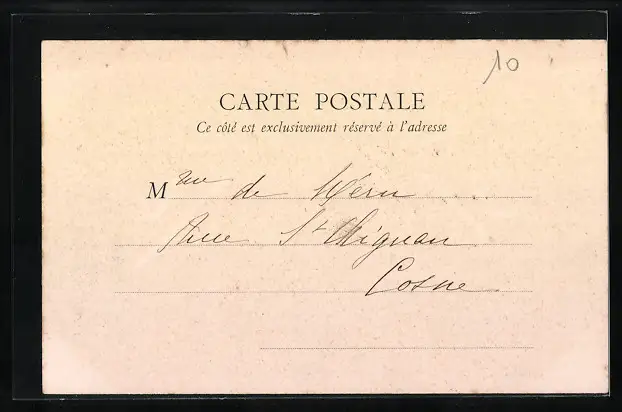 10
CARTE POSTALE
Ce côté est exclusivement réservé à l'adresse
Mme de
Rue St Aignan
Cosne